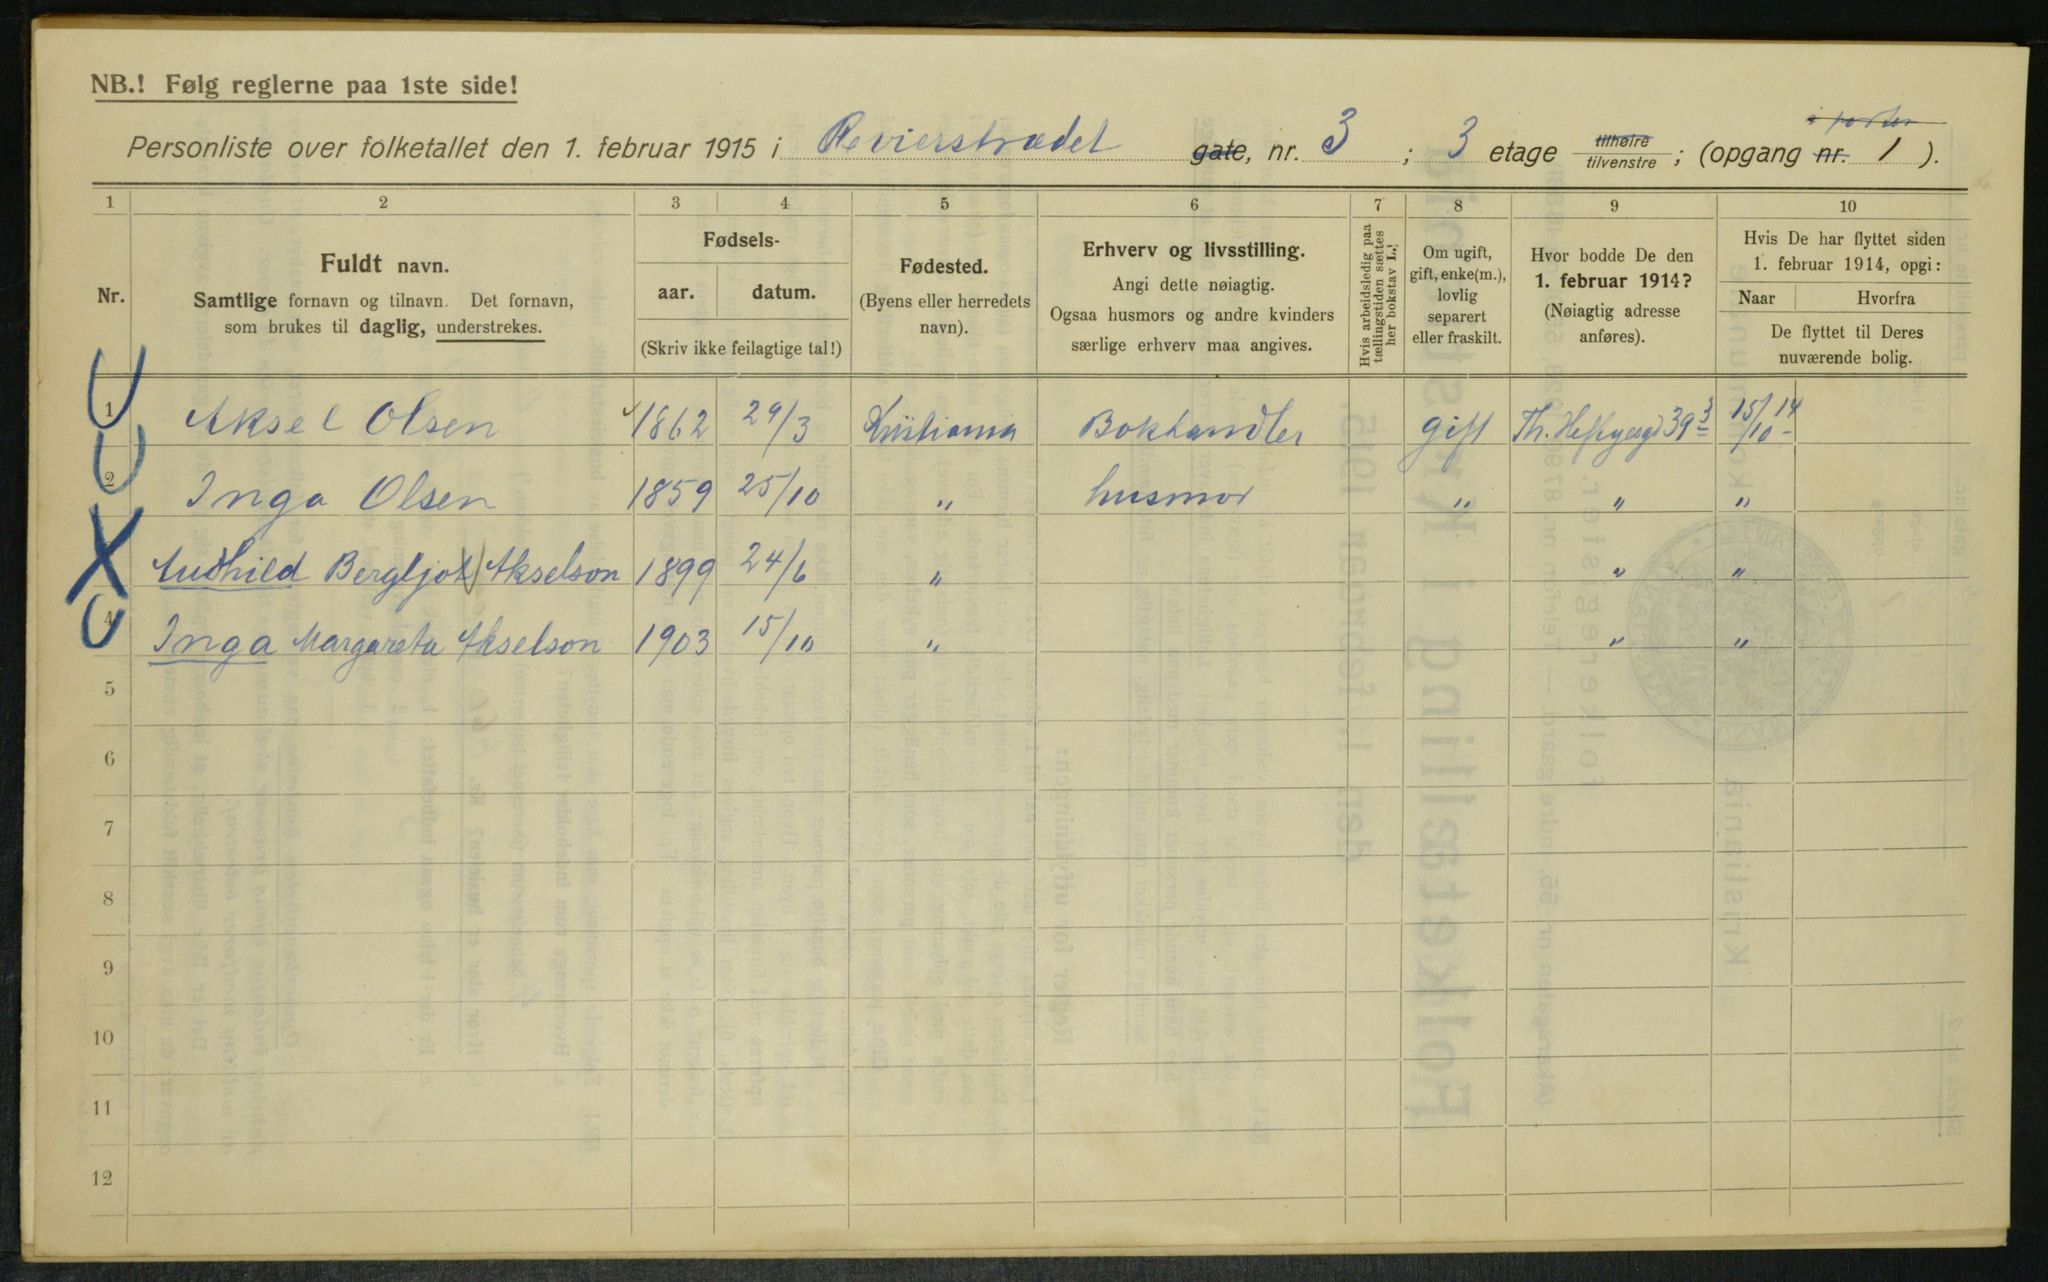 NB.! Følg reglerne paa 1ste side!
Personliste over folketallet den 1. februar 1915 i Revierstrædet gate, nr. 3 ; 3 etage tilhøire tilvenstre ; (opgang nr. 1 ).
1 2 3 4 5 6 7 8 9 10
Nr.
Fuldt navn.
Samtlige fornavn og tilnavn. Det fornavn,
som brukes til daglig, understrekes.
Fødsels-
aar. datum.
(Skriv ikke feilagtige tal!)
Fødested.
(Byens eller herredets
navn).
Erhverv og livsstilling.
Angi dette nøiagtig.
Ogsaa husmors og andre kvinders
særlige erhverv maa angives.
Hvis arbeidsledig paa
tællingstiden sættes
her bokstav L.!
Om ugift,
gift, enke(m.),
lovlig
separert
eller fraskilt.
Hvor bodde De den
1. februar 1914?
(Nøiagtig adresse
anføres).
Hvis De har flyttet siden
1. februar 1914, opgi:
Naar Hvorfra
De flyttet til Deres
nuværende bolig.
1 Aksel Olsen 1862 29/3 Kristiania Bokhandler gift Th. Heftyesgt 39 3 15/10 14
2 Inga Olsen 1859 25/10 " husmor " " "
Audhild Bergljot Akselson 1899 24/6 " " "
4 Inga Margareta Akselson 1903 15/10 " " "
5
6
7
8
9
10
11
12